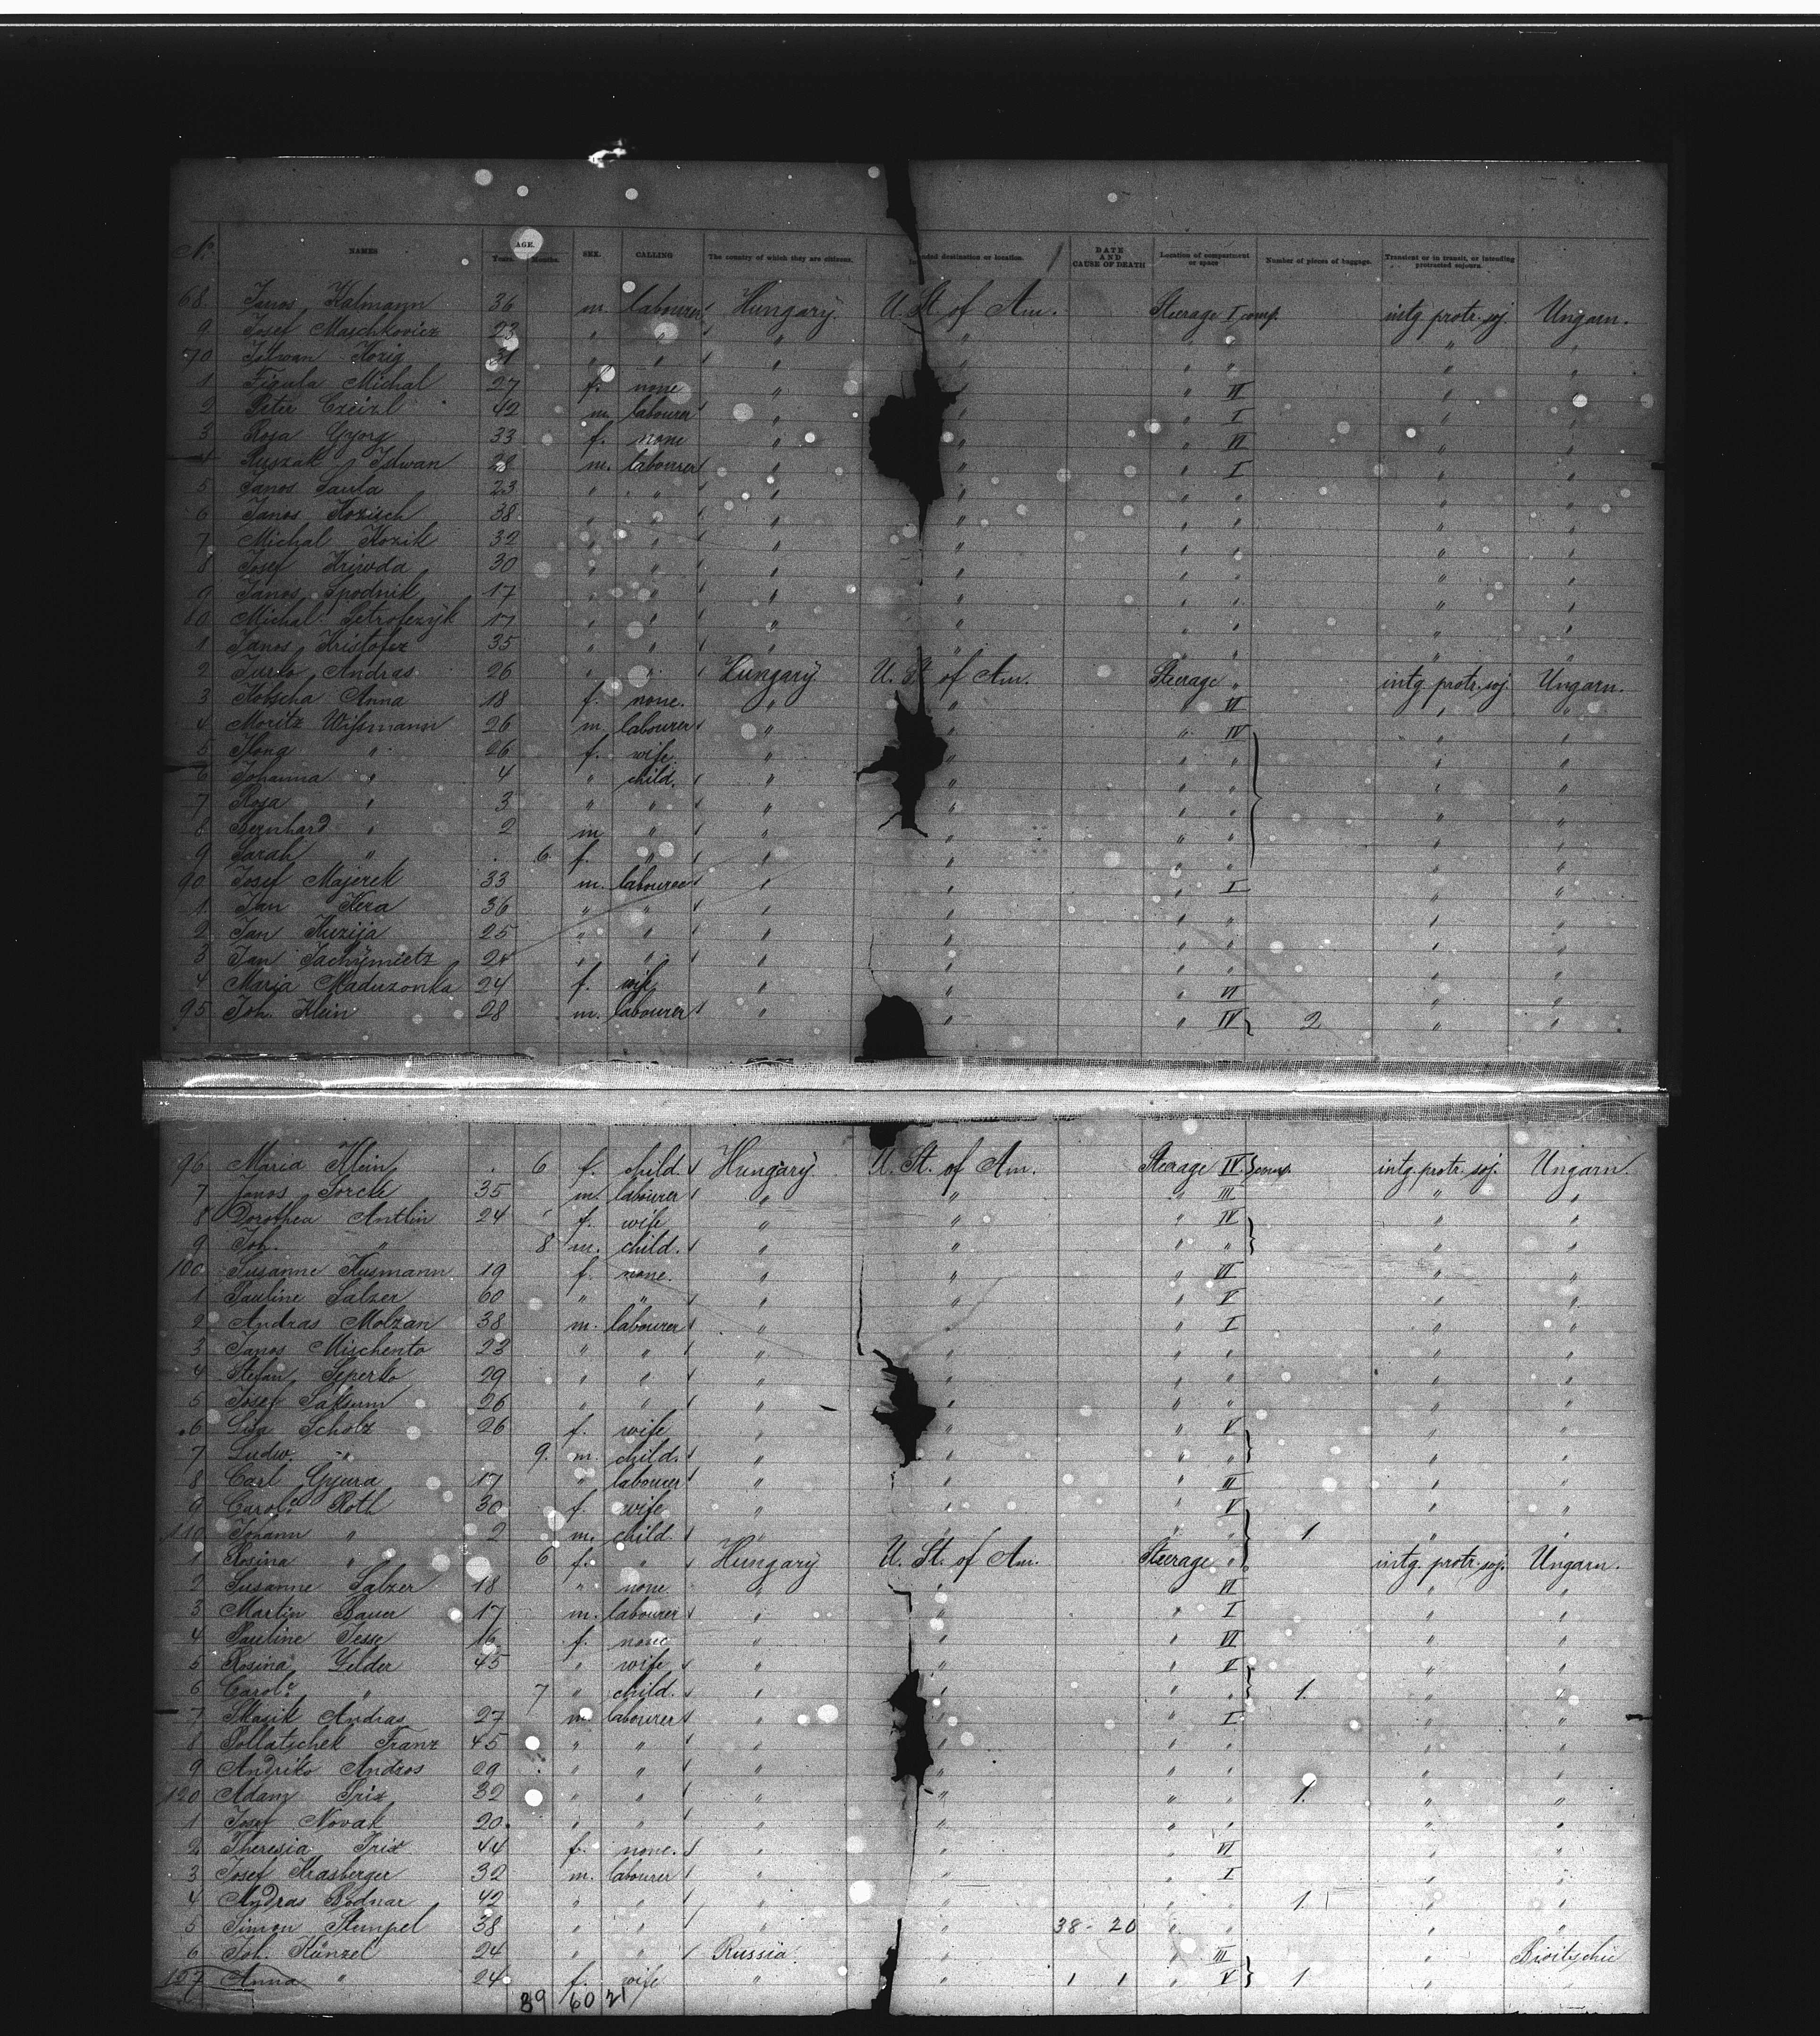 No. NAMES AGE. Years. Months. SEX. CALLING The country of which they are citizens. ended destination or location. DATE AND CAUSE OF DEATH Location of compartment or space Number of pieces of baggage. Transient or in transit, or intending protracted sojourn.
68. Janos Kalmann 36 m labourer Hungary U. St. of Am. Steerage I comp. intg protr. soj. Ungarn.
9 Josef Maschkovicz 23 " " " " " " " "
70 Istwan Kozig 31 " " " " " " " "
1 Figula Michal 27 f. none " " " VI " "
2 Peter Czeizl 42 m. labourer " " " I " "
3 Rosa Gyorg 33 f. none " " " VI " "
4 Ruszak Istwan 28 m. labourer " " " I " "
5 Janos Saula 23 " " " " " " " "
6 Janos Kozisch 38 " " " " " " " "
7 Michal Kozik 32 " " " " " " " "
8 Josef Kriwda 30 " " " " " " " "
9 Janos Spodnik 17 " " " " " " " "
80 Michal Petrofczyk 17 " " " " " " " "
1 Janos Kristofez 35 " " " " " " " "
2 Jurko Andras 26 " " Hungary U. St. of Am. Steerage " intg protr. soj. Ungarn.
3 Kotscha Anna 18 f. none. " " " VI " "
4 Moritz Wißmann 26 m. labourer " " " IV " "
5 Ilong " 26 f. wife. " " " " " "
6 Johanna " 4 " child. " " " " " "
7 Rosa " 3 " " " " " " " "
8 Bernhard " 2 m " " " " " " "
9 Sarah " . 6 f. " " " " " " "
90 Josef Majerek 33 m. labourer " " " I " "
1 Jan Kera 36 " " " " " " " "
2 Jan Kuzija 25 " " " " " " " "
3 Jan Jachymietz 24 " " " " " " " "
4 Maria Maduzonka 24 f. wife " " " VI " "
95 Joh. Klein 28 m. labourer " " " IV 2 " "
96 Maria Klein . 6 f. child Hungary U. St. of Am. Steerage IV comp. intg. protr. soj. Ungarn.
7 Janos Sorcke 35 m. labourer " " " III " "
8 Dorothea Antlin 24 f. wife " " " IV " "
9 Joh. " 8 m. child. " " " " " "
100 Susanne Kusmann 19 f. none. " " " VI " "
1 Pauline Salzer 60 " " " " " V " "
2 Andras Molzan 38 m. labourer " " " I " "
3 Janos Mischento 23 " " " " " " " "
4 Stefan Seperko 29 " " " " " " " "
5 Josef Saksum 26 " " " " " " " "
6 Lisa Scholz 26 f. wife " " " V " "
7 Ludw. " 9. m. child. " " " " " "
8 Carl Gyura 17 " labourer " " " III " "
9 Carole Roth 30 f. wife " " " V " "
110 Johann " 2 m. child " " " " 1. " "
1 Rosina " 6 f. " Hungary U. St. of Am. Steerage " intg. protr. soj. Ungarn.
2 Susanne Salzer 18 " none " " " VI " "
3 Martin Bauer 17 m. labourer " " " I " "
4 Pauline Jesse 16 f. none " " " VI " "
5 Rosina Gelder 45 " wife " " " V " "
6 Carole " 7 " child. " " " " 1. " "
7 Skasik Andras 27 m. labourer " " " I " "
8 Pollatschek Franz 45 " " " " " " " "
9 Andriko Andros 29 " " " " " " " "
120 Adam Prix 32 " " " " " " 1. " "
1 Josef Novak 20. " " " " " " " "
2 Theresia Trix 44 f. none. " " " VI " "
3 Josef Krasberger 32 m. labourer " " " I " "
4 Andras Bodnar 42 " " " " " " 1. " "
5 Simon Stempel 38 " " " " 38 - 20 " " " "
6 Joh. Künzel 24 " " Russia. " " III "
127 Anna " 24. f. wife " " 1 1 " V 1 " "
39 60 21